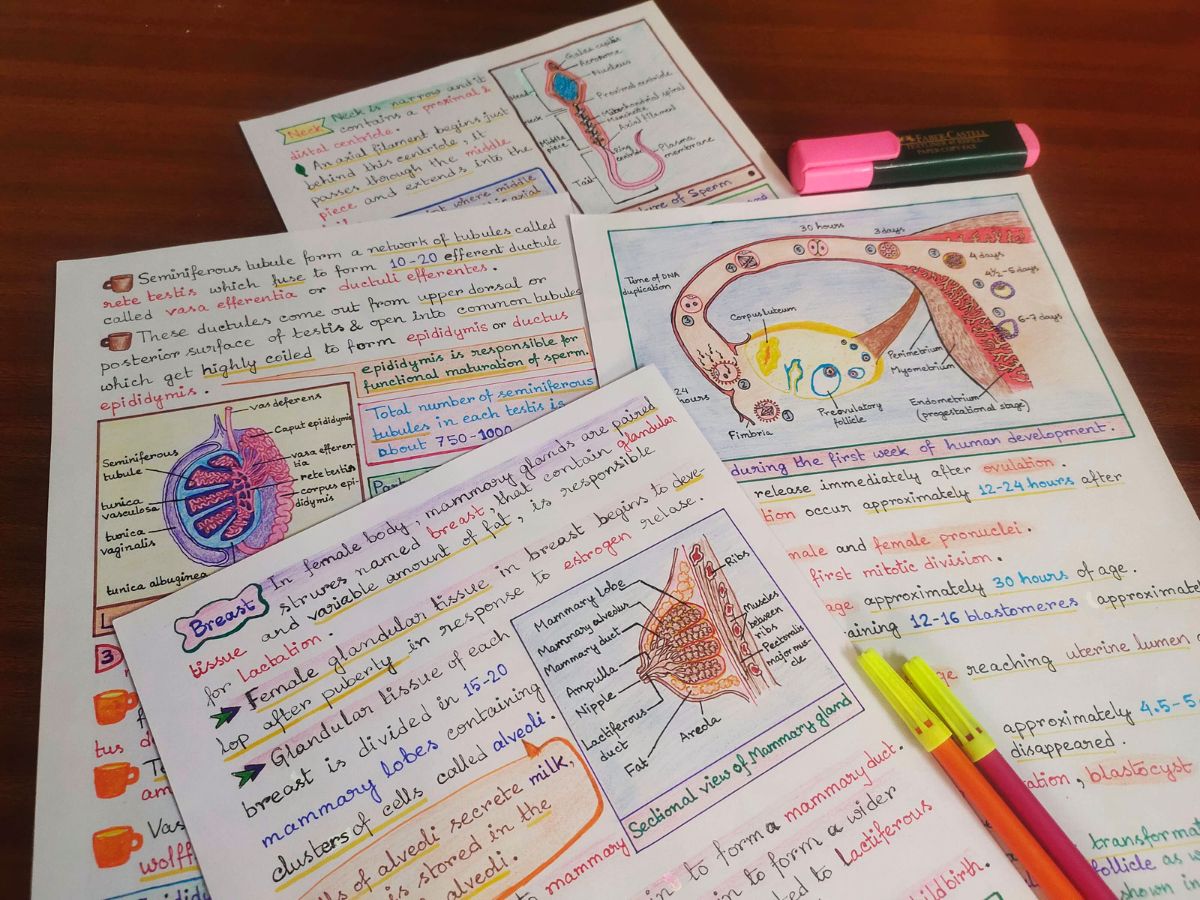 Neck
Neck is narrow and it
contains a proximal &
distal centriole.
An axial filament begins just
behind this centriole, It
passes through the middle
piece and extends into the
int where middle
Galea capitis
Acrosome
Nucleus
Proximal centriole
Mitochondrial spiral
Manchette
Axial filament
Ring centriole
Plasma membrane
Head
Neck
Middle piece
Tail
ure of Sperm
FABER-CASTELL
TEXTLINER 48 REFILL
PAPER·COPY·FAX
Seminiferous tubule form a network of tubules called
rete testis which fuse to form 10-20 efferent ductule
called vasa efferentia or ductuli efferentes.
These ductules come out from upper dorsal or
posterior surface of testis & open into common tubules
which get highly coiled to form epididymis or ductus
epididymis.
epididymis is responsible for
functional maturation of sperm.
Total number of seminiferous
tubules in each testis is
about 750-1000
Part
vas deferens
Caput epididymis
vasa efferen-
tia
rete testis
corpus epi-
didymis
Seminiferous
tubule
tunica
vasculosa
tunica
vaginalis
tunica albuginea
L
3
f
tus d
T
am
Vas
wolff
Epididy
30 hours
3 days
4 days
4½-5 days
6-7 days
Time of DNA
duplication
Corpus luteum
24
hours
Fimbria
Preovulatory
follicle
Perimetrium
Myometrium
Endometrium
(progestational stage)
during the first week of human development.
release immediately after ovulation.
tion occur approximately 12-24 hours after
male and female pronuclei.
first mitotic division.
age approximately 30 hours of age.
aining 12-16 blastomeres approximat
ge reaching uterine lumen
approximately 4.5-5
disappeared.
ation, blastocyst
transformat
follicle as w
shown in
Breast
In female body, mammary glands are paired
strures named breast, that contain glandular
tissue and variable amount of fat, is responsible
for Lactation.
Female glandular tissue in breast begins to deve-
lop after puberty in response to estrogen relase.
Glandular tissue of each
breast is divided in 15-20
mammary lobes containing
clusters of cells called alveoli.
lls of alveoli secrete milk,
is stored in the
alveoli.
Mammary lobe
Mammary alveolus
Mammary duct
Ampulla
Nipple
Lactiferous
duct
Fat
Areola
Ribs
Muscles
between
ribs
Pectoralis
major mus-
cle
Sectional view of Mammary gland
to mammary
in to form a mammary duct.
in to form a wider
ted to Lactiferous
hildbirth.